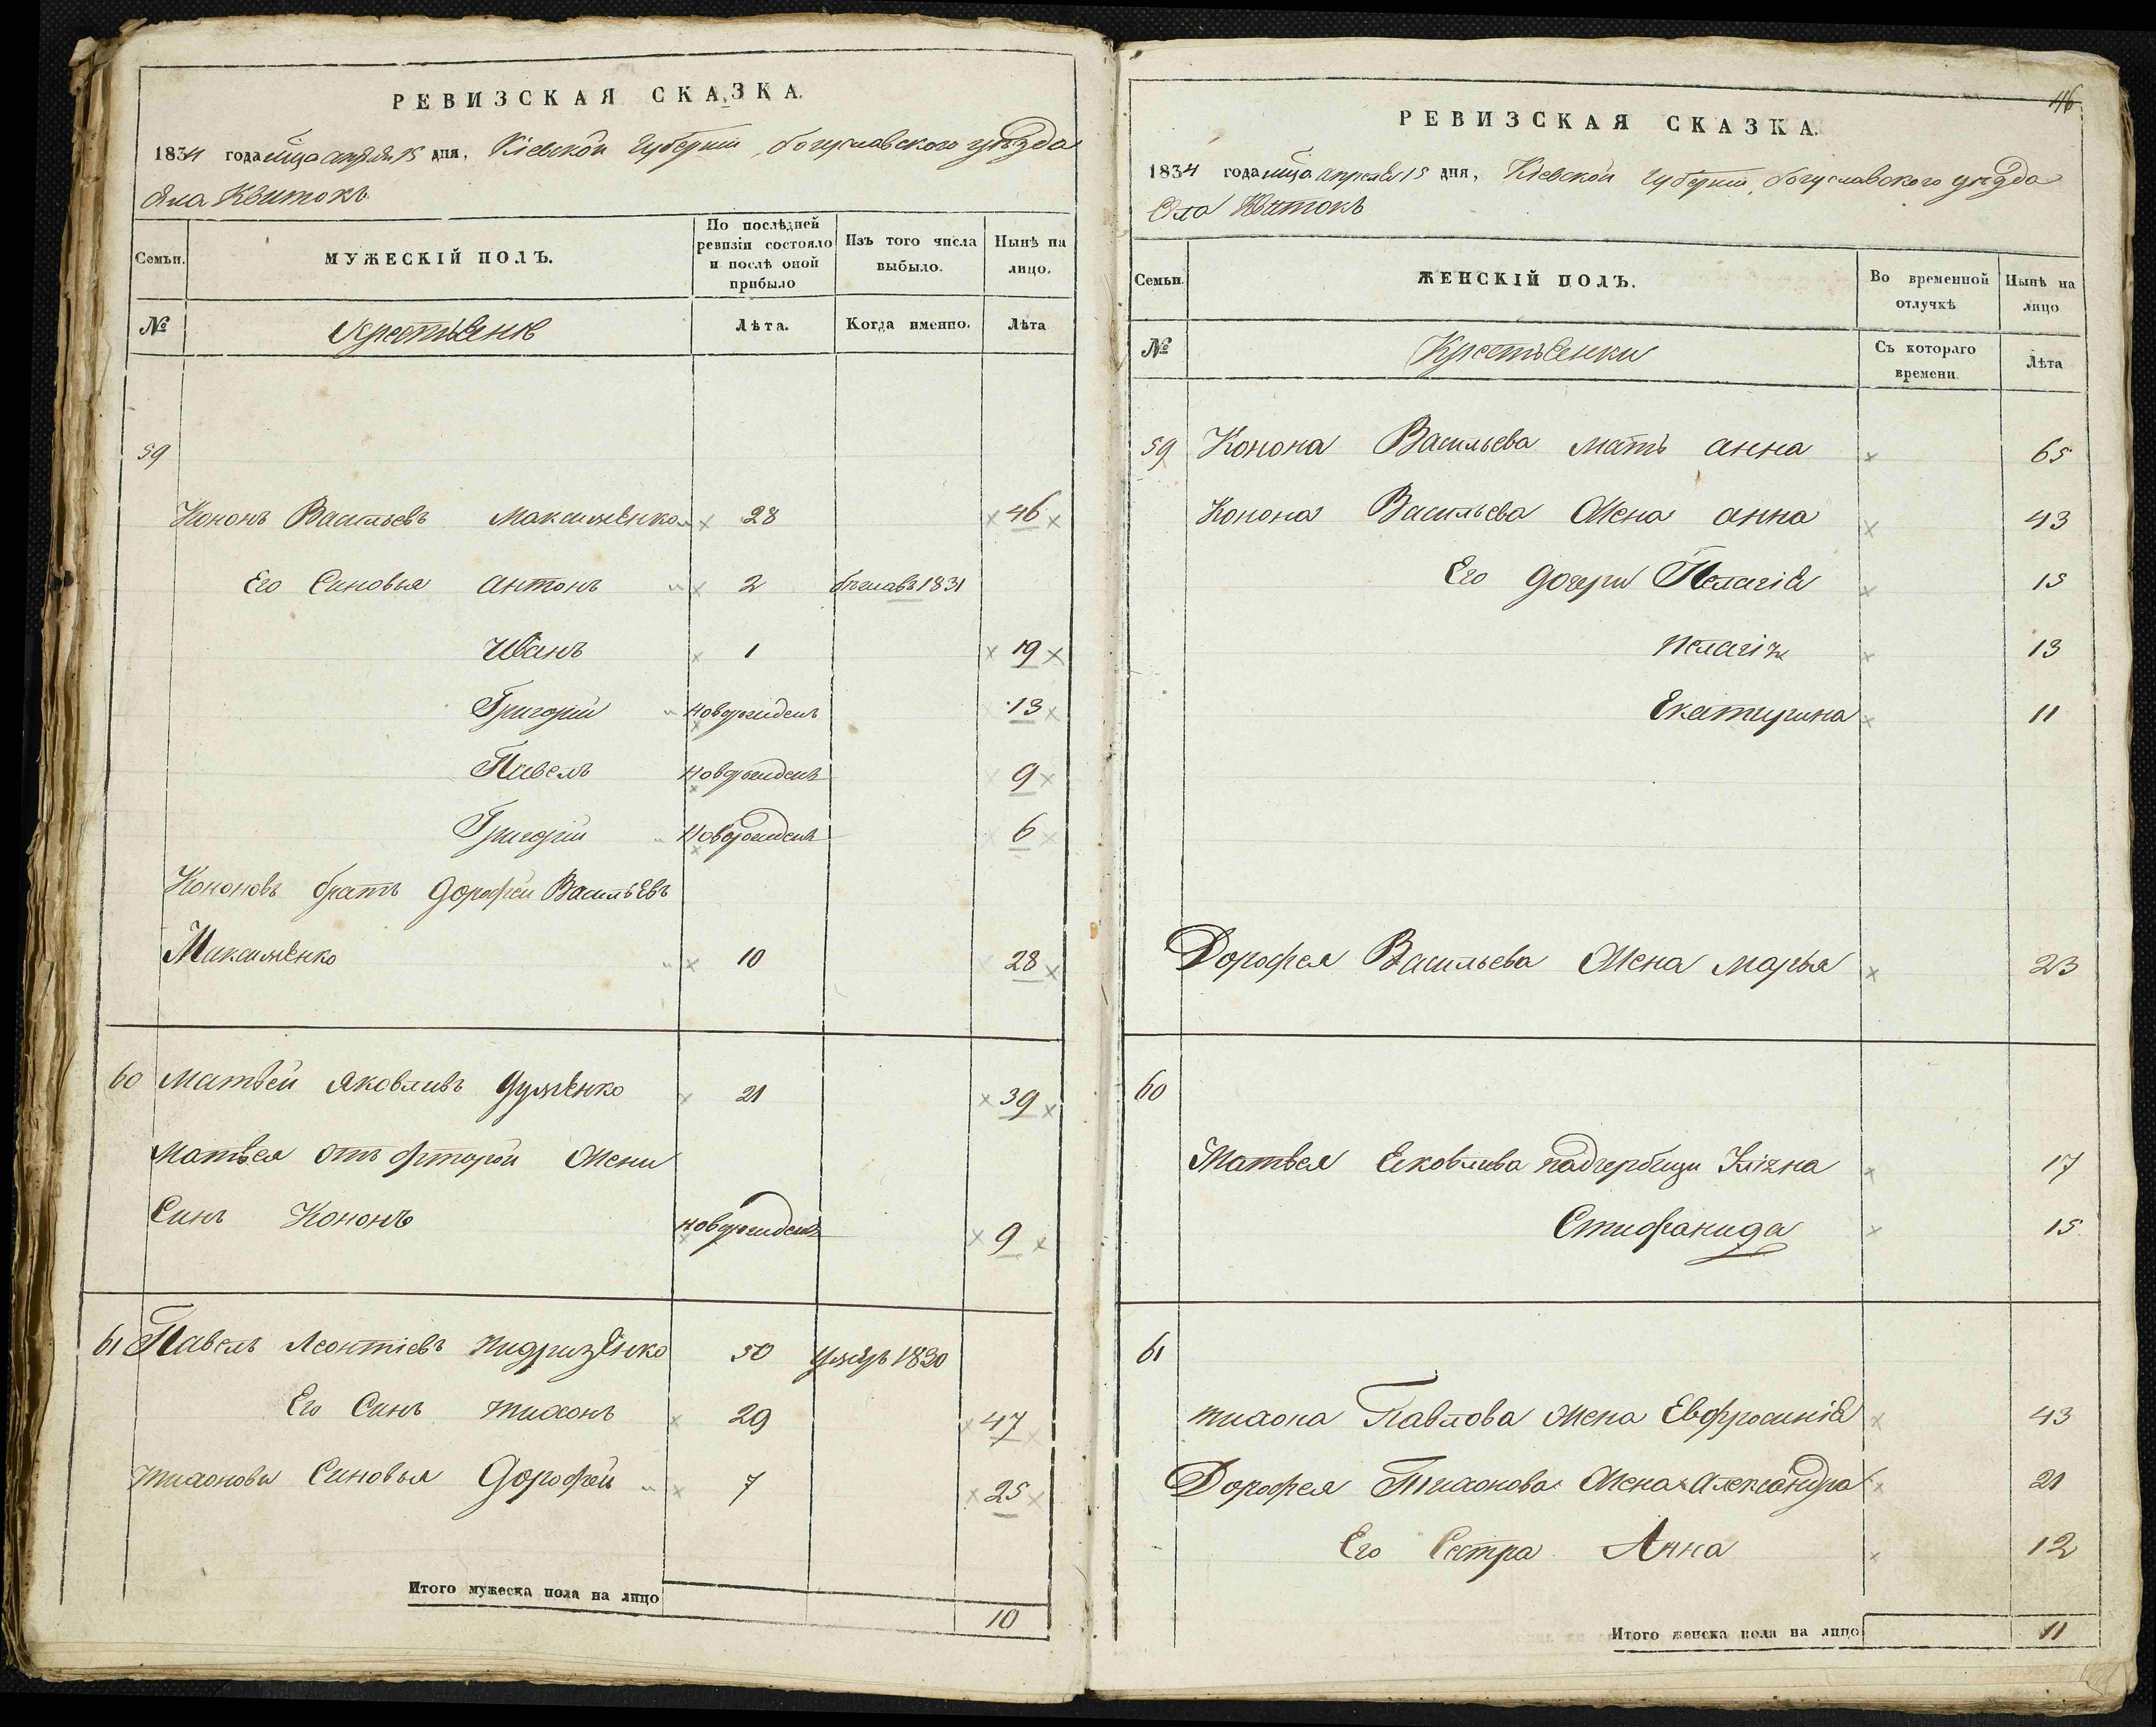 РЕВИЗСКАЯ СКАЗКА.
1834 года мца апреля 15 дня, Кіевской Губерніи, богуславского уезда
Села Квитокъ
Семьи.
МУЖЕСКІЙ ПОЛЪ.
По послѣдней ревизіи состояло и послѣ оной прибыло
Изъ того числа выбыло.
Нынѣ на лицо.
№
Крестьяне
Лѣта.
Когда именно.
Лѣта
59
Кононъ Васильевъ Максименко 28 46
Его Синовья антонъ 2 бежавъ 1831
Иванъ 1 19
Григорій новорожденъ 13
Павелъ новорожденъ 9
Григорій Новорожденъ 6
Кононовъ братъ Дорофей Васильевъ
Максименко 10 28
60 Матвей Яковливъ Дуженко 21 39
Матвея отъ фторой жени
Синъ Кононъ новорожденъ 9
61 Павелъ Леонтіевъ 50 умеръ 1830
Его Синъ тихонъ 29 47
тихонови Синовья Дорофей 7 25
Итого мужеска пола на лицо 10
46
РЕВИЗСКАЯ СКАЗКА.
1834 года мца апреля 15 дня, Кіевской Губерніи, богуславского уезда
Села Квитокъ
Семьи.
ЖЕНСКІЙ ПОЛЪ.
Во временной отлучкѣ
Нынѣ на лицо
№
Крестьянки
Съ котораго времени.
Лѣта
59 Конона Васильева мать анна 65
Конона Васильева жена анна 43
Его дочери Пелагія 15
пелагія 13
Екатирина 11
Дорофея Васильева жена марья 23
60
Матвея Яковлива падчерици 17
Стифанида 15
61
тихона Павлова жена Евфросинія 43
Дорофея Тихонова жена Александра 21
Его Сестра Анна 12
Итого женска пола на лицо 11